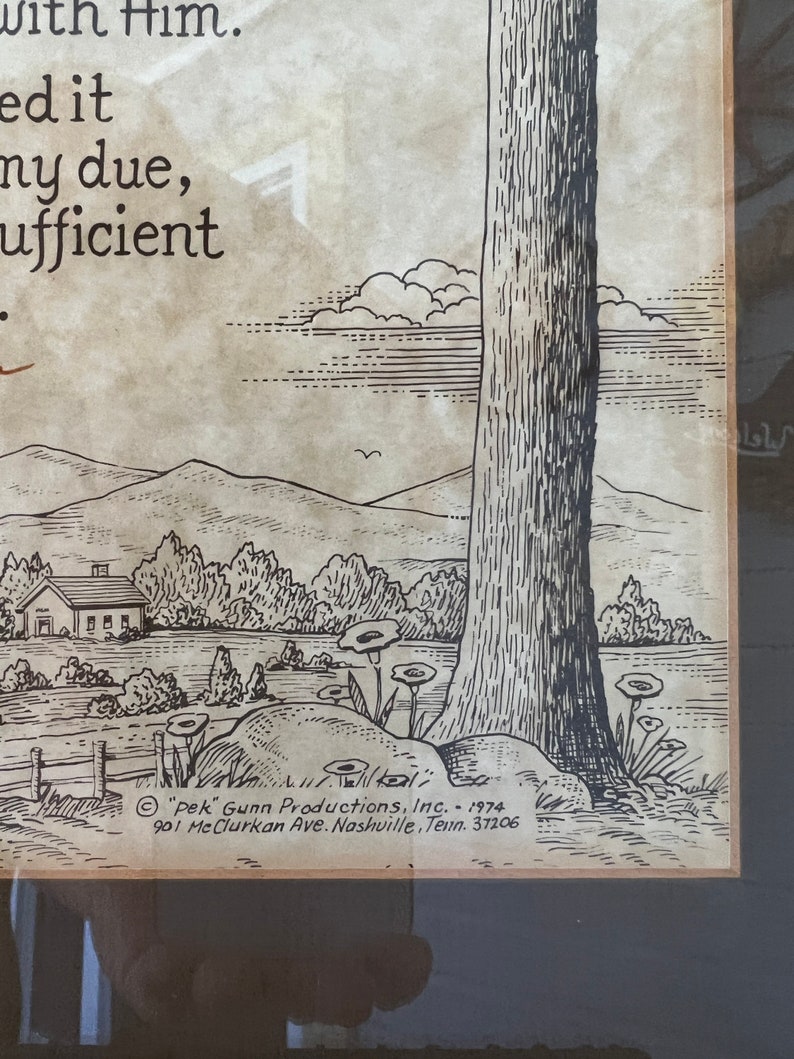 with Him.
ed it
my due,
ufficient
.
© "Pek" Gunn Productions, Inc. - 1974
901 McClurkan Ave. Nashville, Tenn. 37206